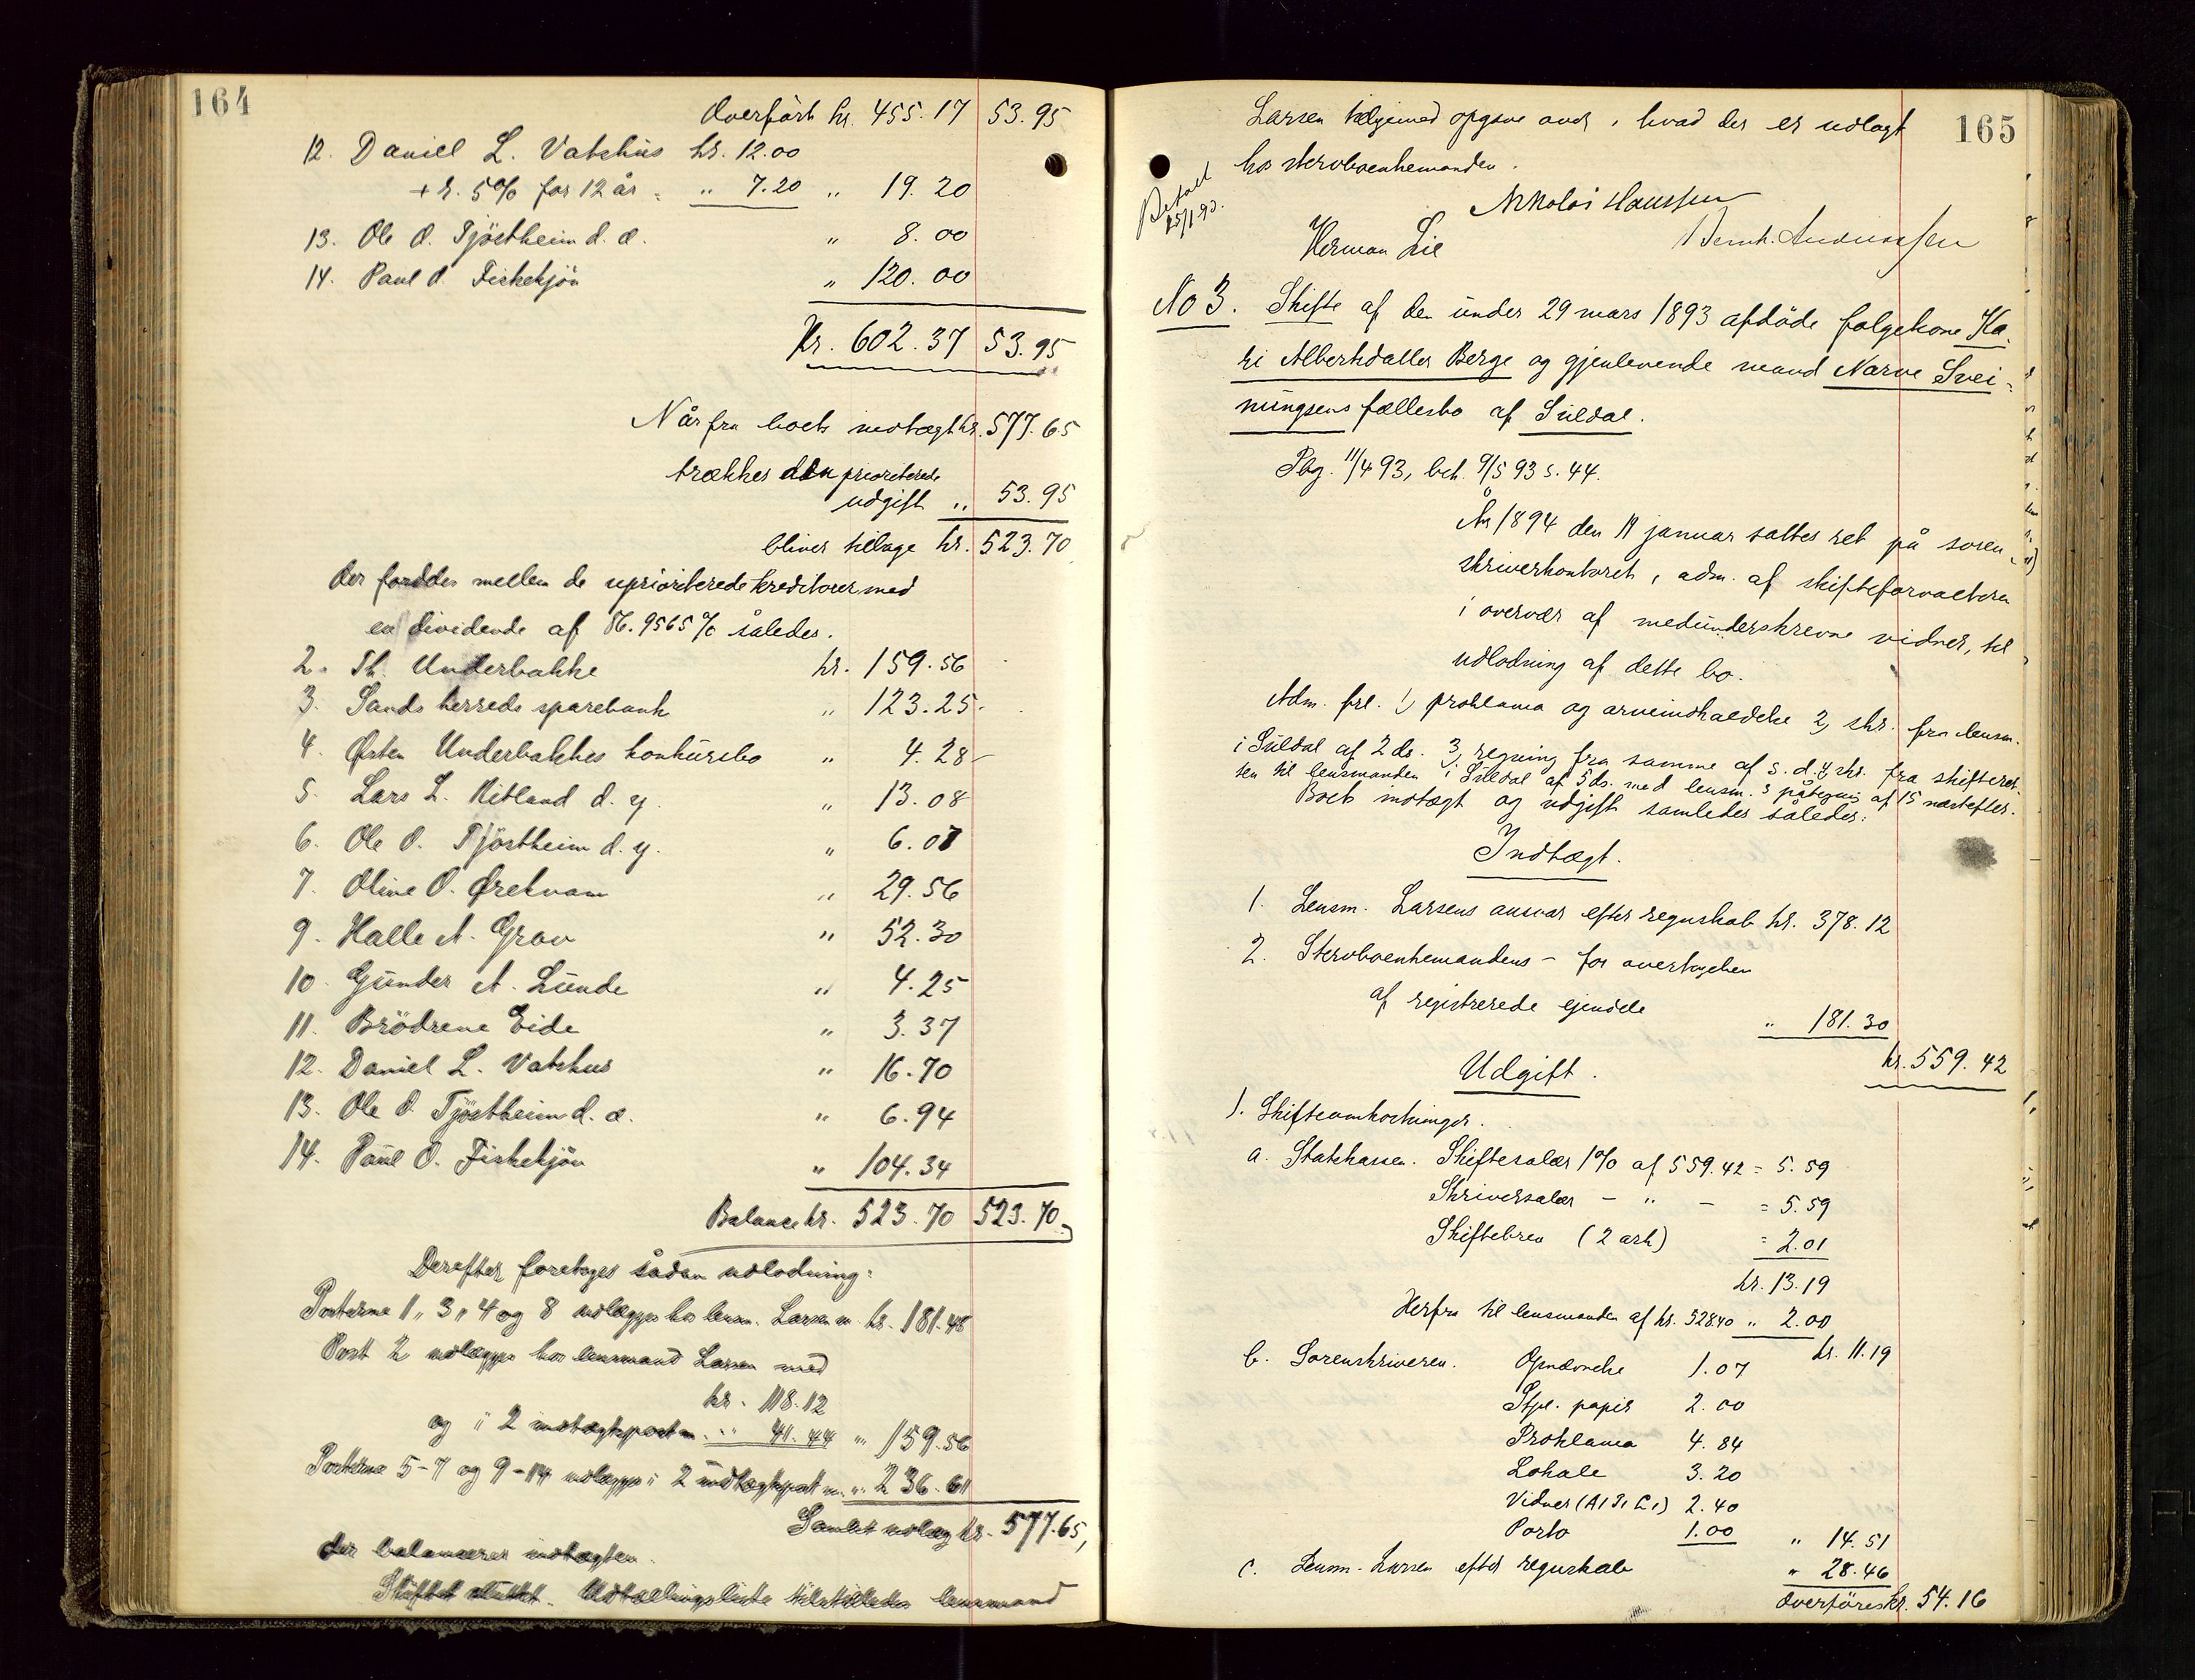 164
Overført kr. 455.17 53.95
12. Daniel L. Vatshus kr. 12.00
+ r. 5% for 12 år = " 7.20 " 19.20
13. Ole O. Tjöstheim d. æ. " 8.00
14. Paul O. Fiskekjön " 120.00
Kr. 602.37 53.95
Når fra boets indtægt kr. 577.65
trækkes den prioriterede
udgift " 53.95
bliver tilbage kr. 523.70
der fordeles mellem de uprioriterede kreditorer med
en dividende af 86.9565% således.
2. Th. Underbakke kr. 159.56
3. Sands herreds sparebank " 123.25
4. Østen Underbakkes konkursbo " 4.28
5. Lars L. Ritland d. y. " 13.08
6. Ole O. Tjöstheim d. y. " 6.07
7. Oline O. Ørekvam " 29.56
9. Halle A. Grov " 52.30
10. Gunder A. Lunde " 4.25
11. Brödrene Eide " 3.37
12. Daniel L. Vatshus " 16.70
13. Ole O. Tjöstheim d. æ. " 6.94
14. Paul O. Fiskekjön " 104.34
Balance kr. 523.70 523.70
Derefter foretages sådan udlodning:
Posterne 1, 3, 4 og 8 udlægges hos lensm. Larsen m. kr. 181.48
Post 2 udlægges hos lensmand Larsen med
kr. 118.12
og i 2 indtægtspost m. " 41.44 " 159.56
Posterne 5-7 og 9-14 udlægges i 2 indtægtspost m. " 236.61
Samlet udlæg kr. 577.65,
der balancerer indtægten.
Skiftet sluttet. Udtællingsliste tilstilledes lensmand
165
Larsen tilligemed opgave over, hvad der er udlagt
hos stervboenkemanden.
Betalt
25/1 90.
Nikolai Hanssen
Herman Lie Bernh. Anderssen
No 3. Skifte af den under 29 mars 1893 afdöde folgekone Ka-
ri Albertsdatter Berge og gjenlevende mand Narve Svei-
nungsens fællesbo af Suldal.
Pbg. 11/4 93, beh. 9/5 93 s. 44.
År 1894 den 19 januar sattes ret på soren-
skriverkontoret, adm. af skifteforvalteren
i overvær af medunderskrevne vidner, til
udlodning af dette bo.
Adm. frl. 1, proklama og arveindkaldelse 2, skr. fra lensm.
i Suldal af 2 ds. 3, regning fra samme af s. d. 4, skr. fra skifteret-
ten til lensmanden i Suldal af 5 ds. med lensm.s påtegnig af 15 næstefter.
Boets indtægt og udgift samledes således:
Indtægt.
1. Lensm. Larsens ansvar efter regnskab kr. 378.12
2. Stervboenkemandens – for overtagelsen
af registrerede ejendele " 181.30
kr. 559.42
Udgift.
1. Skifteomkostninger.
a. Statskassen. Skiftesalær 1% af 559.42 = 5.59
Skriversalær – " – = 5.59
Skiftebrev (2 ark) = 2.01
kr. 13.19
Herfra til lensmanden af kr. 528.40 " 2.00
kr. 11.19
b. Sorenskriveren. Opnævnelse 1.07
Stpl. papir 2.00
Proklama 4.84
Lokale 3.20
Vidner 2.40
Porto 1.00 " 14.51
c. Lensm. Larsen efter regnskab " 28.46
Overföres kr. 54.16